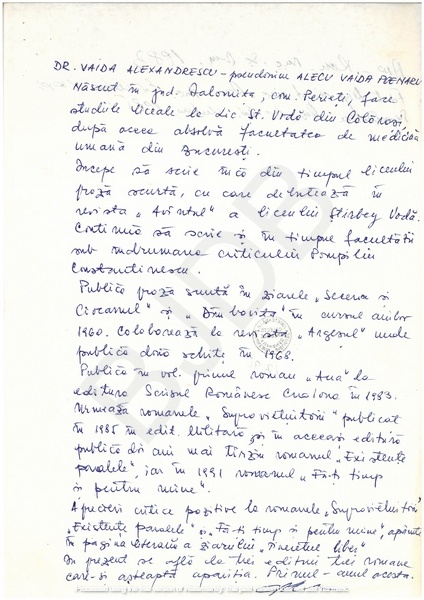 DR. VAIDA ALEXANDRESCU - pseudonim ALECU VAIDA POENARU
Născut în jud. Ialomița, com. Perieți, face
studiile liceale la Lic. Șt. Vodă din Călărași
după aceea absolvă facultatea de medicină
umană din București.
Începe să scrie încă din timpul liceului
proză scurtă, cu care debutează în
revista „Avîntul" a liceului Știrbey Vodă.
Continuă să scrie și în timpul facultății
sub îndrumarea criticului Pompiliu
Constantinescu.
Publică proză scurtă în ziarele „Secera și
Ciocanul" și „Dîmbovița" în cursul anilor
1960. Colaborează la revista „Argeșul" unde
publică două schițe în 1968.
Publică în vol. primul roman „Ana" la
editura Scrisul Românesc Craiova în 1983.
Urmează romanele „Supraviețuitorii" publicat
în 1985 în edit. Militară și în aceeași editură
publică doi ani mai tîrziu romanul „Existențe
paralele", iar în 1991 romanul „Fă-ți timp
și pentru mine".
Aprecieri critice pozitive la romanele „Supraviețuitorii"
„Existențe paralele" și „Fă-ți timp și pentru mine", apărute
în pagina literară a ziarului „Tineretul liber"
În prezent se află la trei edituri trei romane
care-și așteaptă apariția. Primul - anul acesta.